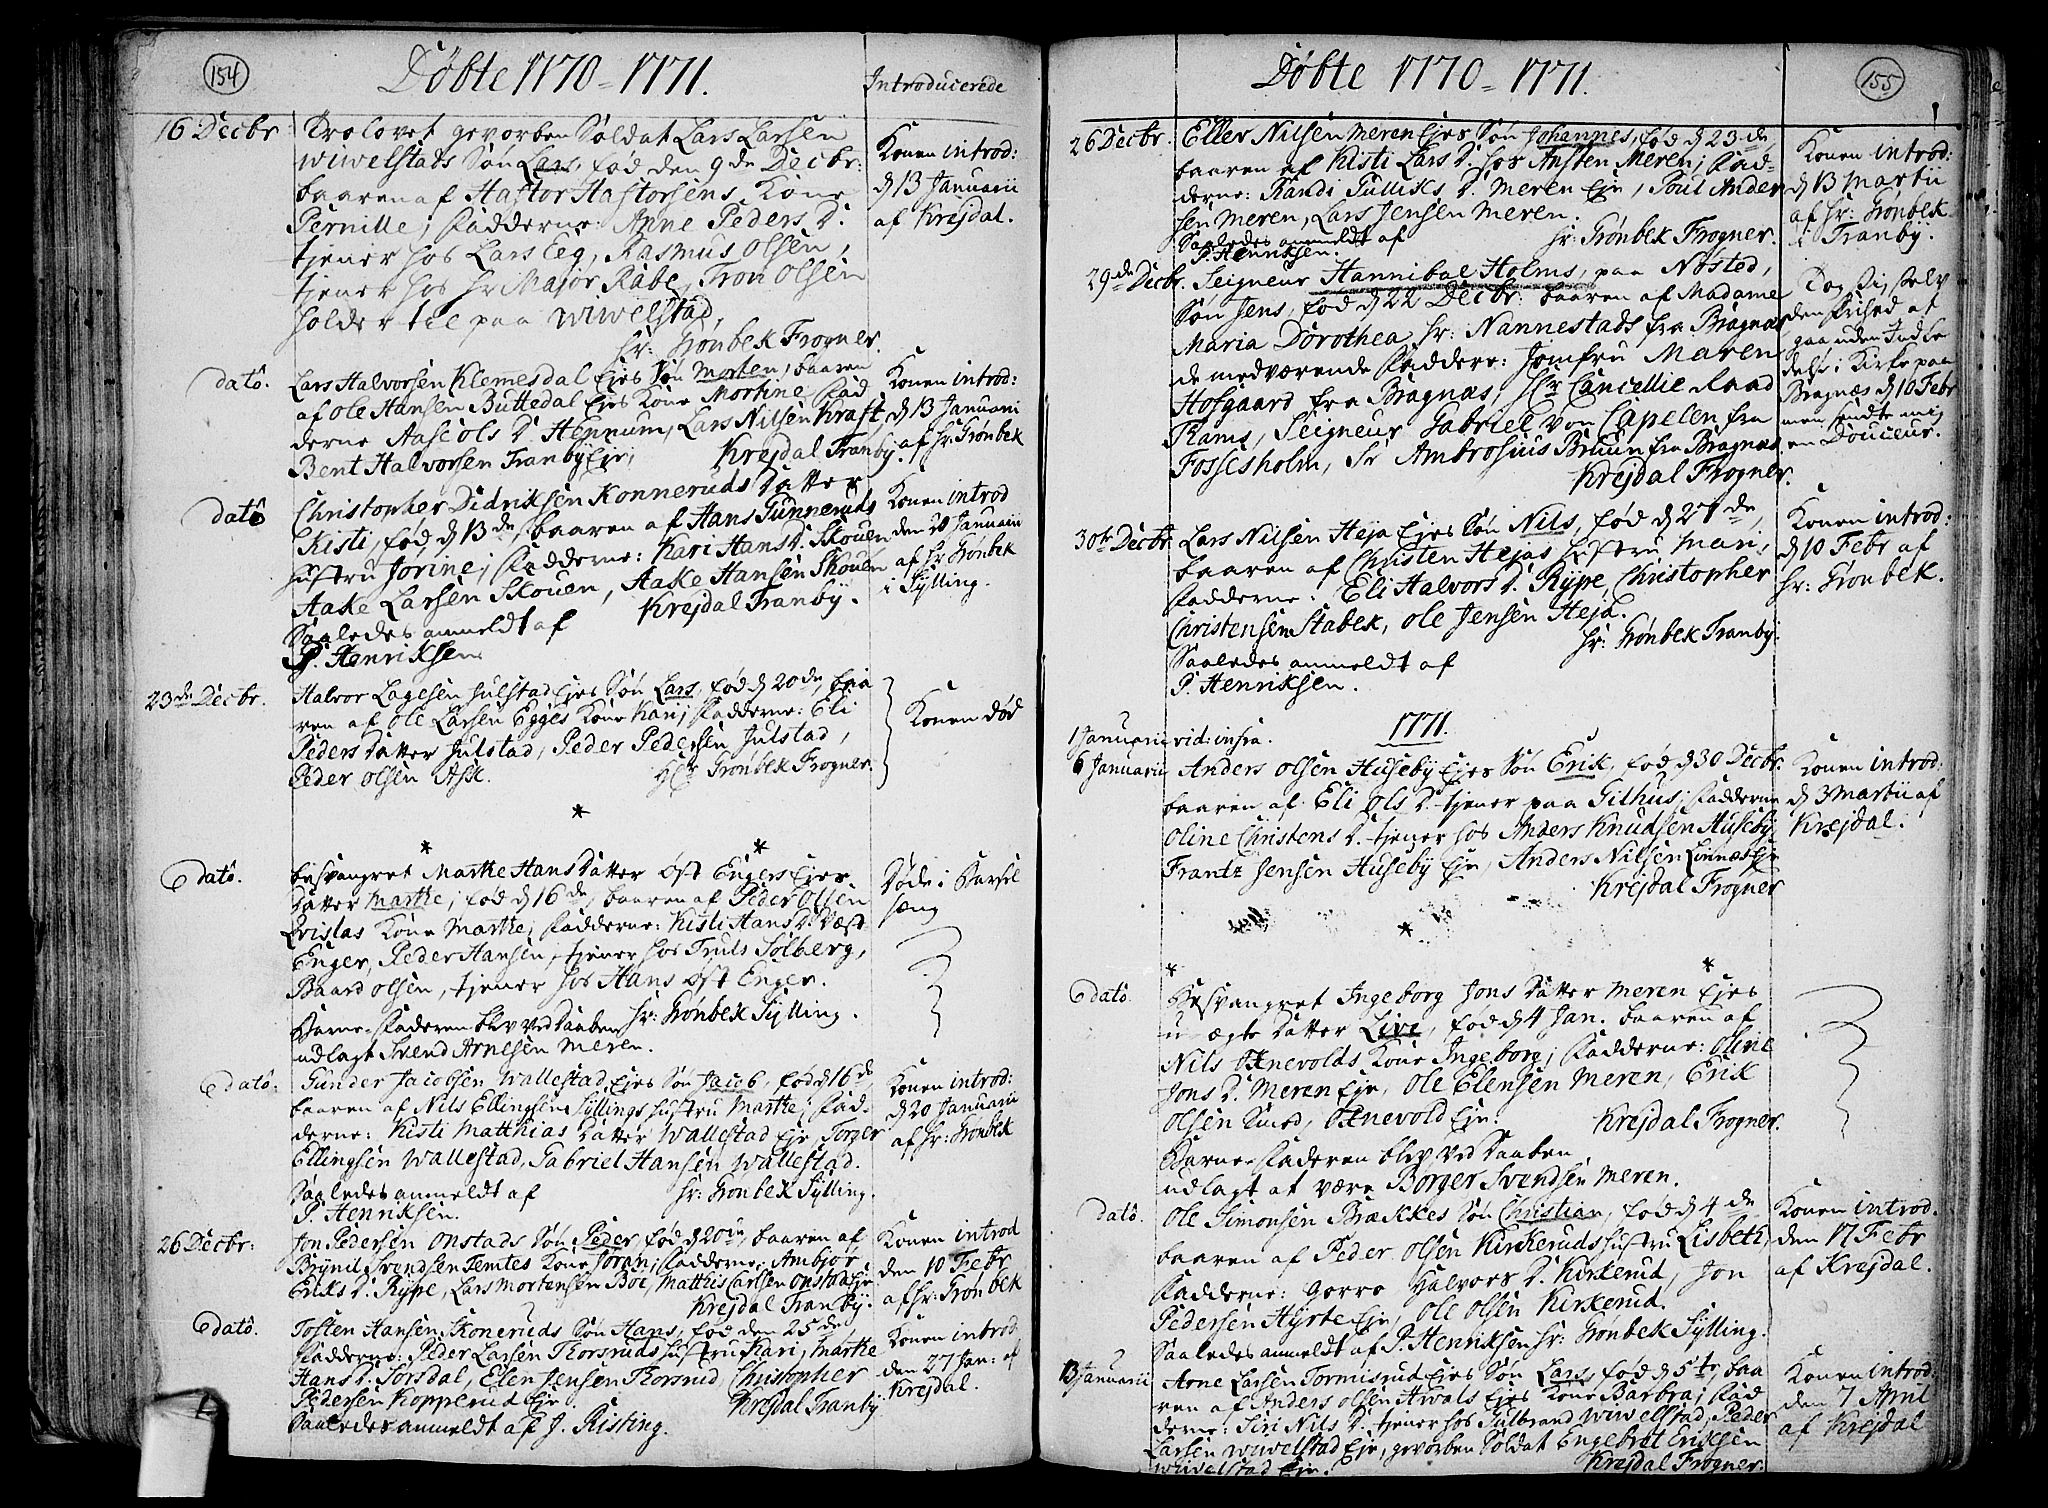 154
Döbte 1770=1771.
Introducerede
16 Decbr
Trolovet gevorben Soldat Lars Larsen
Wiwelstads Søn Lars, fød den 9de Decbr:
baaren af Hastor Hastorsens Kone
Pernille; Fadderne: Anne Peders D.
tjener hos Lars Eeg, Rasmus Olsen,
tjener hos Hr Major Rabe, Tron Olsen
holder til paa Wiwelstad,
Hr: Grönbek Frogner.
Konen introd:
d 13 Januarii
af Krejdal.
dato.
Lars Halvorsen Klemmesdal Ejes Søn Morten, baaren
af Ole Hansen Buttedal Ejes Kone Mortine, Fad
derne Aase Ols D. Hennum, Lars Nilsen Kraft,
Bent Halvorsen Tranby Eje;
Krejdal Tranby.
Konen introd:
d 13 Januarii
af Hr: Grönbek
dato
Christopher Didriksen Konneruds Datter
Kisti, fød d 13de, baaren af Hans Gunneruds
Hustru Jorine; Fadderne: Kari Hans D. Skouen
Aake Larsen Skouen, Aake Hansen Skouen
Krejdal Tranby.
Saaledes anmeldt af
P. Henriksen
Konen introd
den 20 Januarii
af Hr Grönbek
i Sylling.
23de Decbr.
Halvor Lagesen Hulstad Ejes Søn Lars, fød d 20de, baa
ren af Ole Larsen Egges Kone Kari; Fadderne: Eli
Peders Datter Julstad, Peder Pedersen Julstad,
Peder Olsen Ask.
Hr Grönbek Frogner.
Konen död
*
* *
dato.
besvangret Marthe Hans Datter Øst Engers Ejes
Datter Marthe, fød d 16de, baaren af Peder Olsen
Qvislas Kone Marthe; Fadderne: Kisti Hans D. Væst
Enger, Peder Hansen, tjener hos Truls Solberg,
Baard Olsen, tjener hos Hans Øst Enger.
Hr: Grönbek Sylling.
Barne-Faderen blev ved Daaben
udlagt Svend Arnesen Meren.
Döde i Barsel
sæng
dato.
Gunder Jacobsen Wallestad Ejes Søn Jacob, fød d 16de,
baaren af Nils Ellingsen Syllings Hustru Marthe; Fad-
derne: Kisti Matthias Datter Wallestad Eje, Torger
Ellingsen Wallestad, Gabriel Hansen Wallestad.
Saaledes anmeldt af
Hr: Grönbek Sylling.
P. Henriksen.
Konen introd:
d 20 Januarii
af Hr: Grönbek
26 Decbr:
Jon Pedersen Onstads Søn Peder, fød d 20de, baaren af
Brynil Svendsen Temtes Kone Joran; Fadderne: Ambjör
Eriks D. Rype, Lars Mortensen Boe, Matthis Carlsen Onstad Eje
Krejdal Tranby.
Konen introd
den 10 Febr
af Hr: Grönbek
dato.
Tosten Hansen Skoneruds Søn Hans, fød den 25de
Fadderne: Peder Larsen Thorsruds Hustru Kari, Marthe
Hans D. Torsdal, Elen Jensen Thorsrud, Christopher
Pedersen Kopperud Eje.
Krejdal Tranby.
Saaledes anmeldt af J. Risting.
Konen introd
den 27 Jan: af
Krejdal.
155
Döbte 1770=1771.
26 Decbr.
Eller Nilsen Meren Ejes Søn Johannes, fød d 23de,
baaren af Kisti Lars D. hos Ansten Meren; Fad-
derne: Randi Gulliks D. Meren Eje, Poul Ander
sen Meren, Lars Jensen Meren.
Saaledes anmeldt af
Hr: Grönbek Frogner.
P. Henriksen.
Konen introd:
d 13 Martii
af Hr: Grönbek
i Tranby.
29de Decbr.
Seigneur Hannibal Holms, paa Nøsted,
Søn Jens, fød d 22 Decbr: baaren af Madame
Maria Dorothea Hr: Nannestads fra Bragnæs
de medværende Faddere: Jomfru Maren
Hofgaard fra Bragnæs, Hr Cancellie Raad
Rams, Seigneur Gabriel von Capelen fra
Fossesholm, Sr Ambrosius Bruun fra Bragnæs
Krejdal Frogner.
Tog sig selv
den Frihed at
gaa uden Indle
delse i Kirke paa
Bragnæs d 10 Febr
men sendte mig
en Douceur.
30te Decbr
Lars Nilsen Heja Ejes Søn Nils, fød d 27de,
baaren af Christen Hejas Hustru Mari,
Fadderne: Eli Halvors D. Rype, Christopher
Christensen Stabek, Ole Jensen Heja.
Hr: Grönbek Tranby.
Saaledes anmeldt af
P. Henriksen.
Konen introd:
d 10 Febr af
Hr: Grönbek.
1771.
1 Januarii vid: infra.
6 Januarii
Anders Olsen Huseby Ejes Søn Erik, fød d 30 Decbr.
baaren af Eli Ols D. tjener paa Gilhus; Fadderne
Oline Christens D. tjener hos Anders Knudsen Huseby,
Frantz Jensen Huseby Eje, Anders Nilsen Linnæs Eje
Krejdal Frogner
Konen introd:
d 3 Martii af
Krejdal.
*
* *
dato.
Besvangret Ingeborg Jons Datter Meren Ejes
u-ægte Datter Live, fød d 4 Jan. baaren af
Nils Ennevolds Kone Ingeborg; Fadderne: Oline
Jons D. Meren Eje, Ole Elensen Meren, Erik
Olsen Smed, Ennevold Eje.
Krejdal Frogner.
Barne-Faderen blev ved Daaben
udlagt at være Borger Svendsen Meren.
dato.
Ole Simonsen Brækkes Søn Christian, fød d 4de
baaren af Peder Olsen Kirkeruds Hustru Lisbeth,
Fadderne: Gorro Halvors D. Kirkerud, Jon
Pedersen Hyrte Eje, Ole Olsen Kirkerud.
Saaledes anmeldt af P. Henriksen Hr: Grönbek Sylling.
Konen introd.
den 17 Febr
af Krejdal.
13 Januarii
Arne Larsen Tormisrud Ejes Søn Lars, fød d 5te, baa
ren af Anders Olsen Hvals Ejes Kone Barbra; Fad
derne: Siri Nils D. tjener hos Gulbrand Wiwelstad, Peder
Larsen Wiwelstad Eje, gevorben Soldat Engebret Eriksen
Wiwelstad Eje.
Krejdal Frogner.
Konen introd
den 7 April
af Krejdal